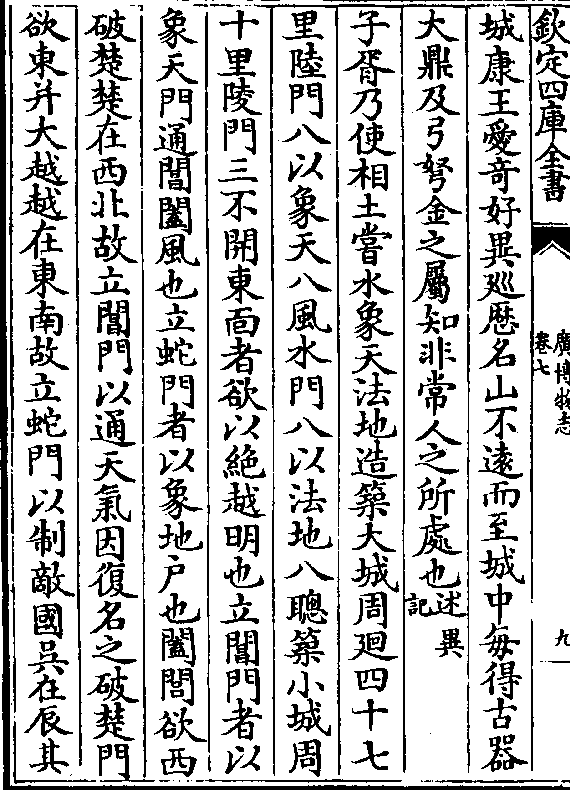 欽定四庫全書
廣博物志
卷七
九
城康王愛奇好異廵歴名山不逺而至城中每得古器
大鼎及弓弩金之屬知非常人之所處也述異記
子胥乃使相土嘗水象天法地造築大城周廻四十七
里陸門八以象天八風水門八以法地八聰築小城周
十里陵門三不開東面者欲以絶越明也立閶門者以
象天門通閶闔風也立蛇門者以象地户也闔閭欲西
破楚楚在西北故立閶門以通天氣因復名之破楚門
欲東并大越越在東南故立蛇門以制敵國吳在辰其